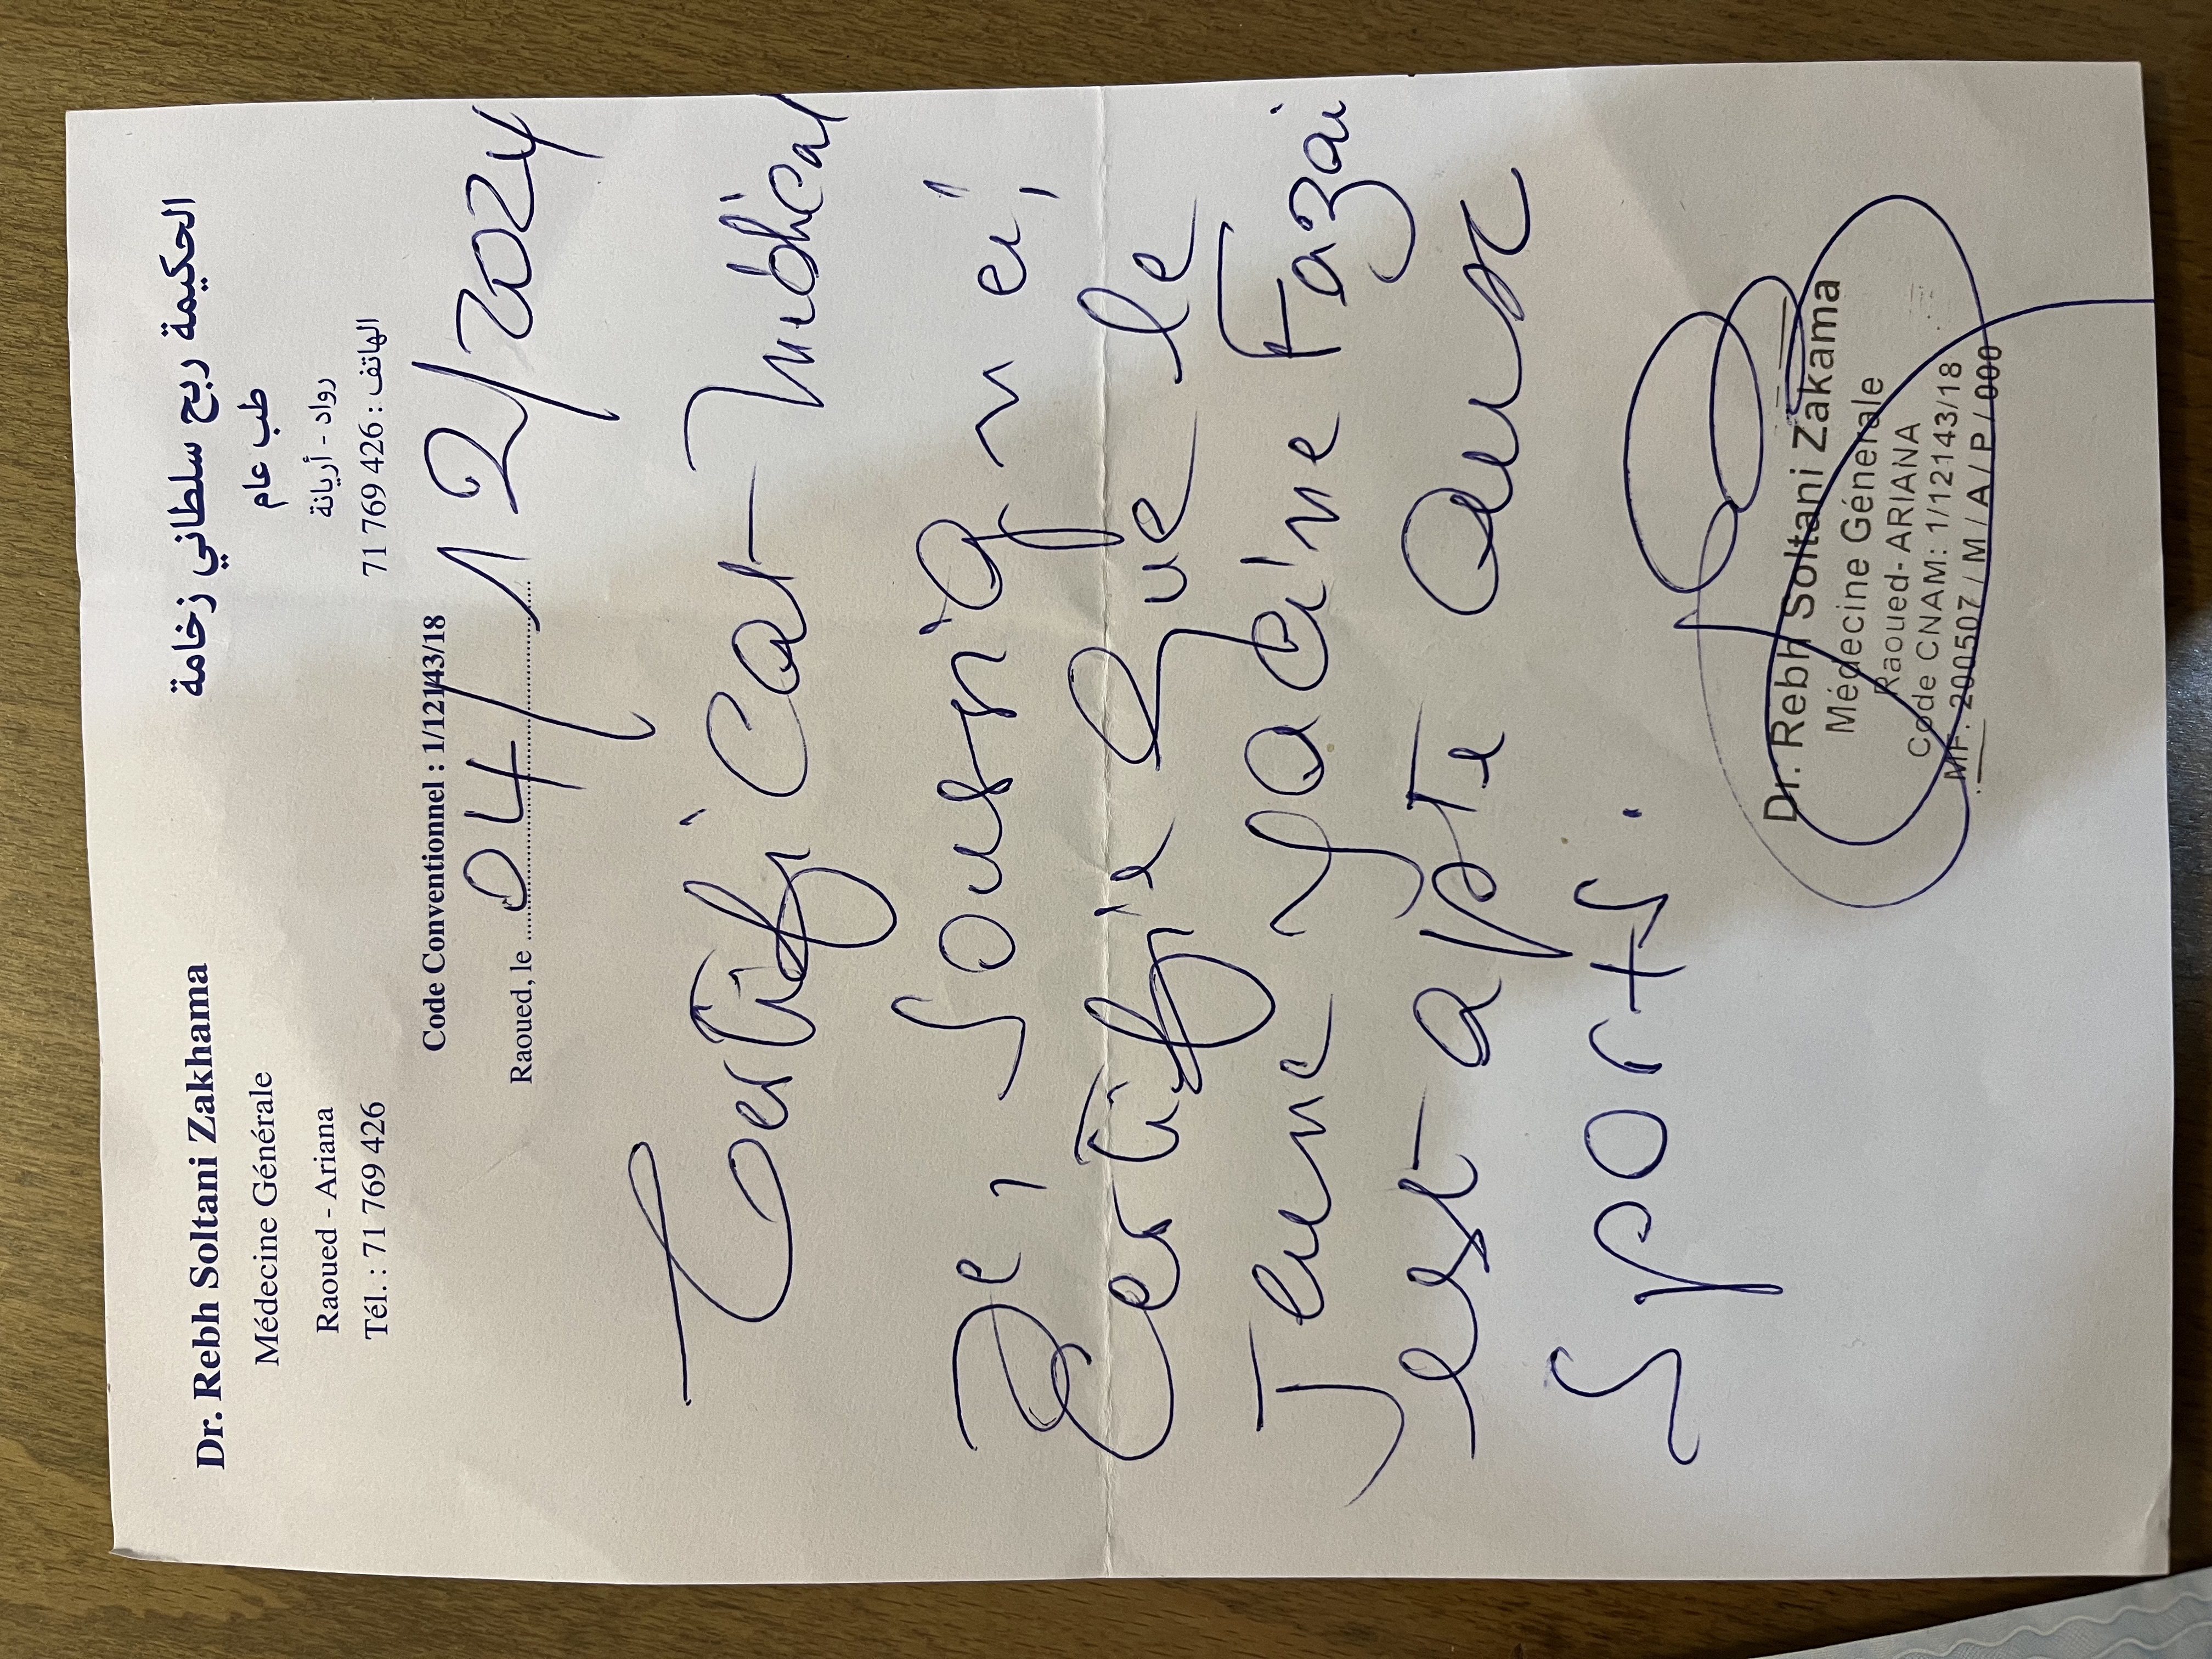 Dr. Rebh Soltani Zakhama
Médecine Générale
Raoued - Ariana
Tél. : 71 769 426
الحكيمة ربح سلطاني زخامة
طب عام
رواد - أريانة
الهاتف : 426 769 71
Code Conventionnel : 1/12143/18
Raoued, le 04/12/2024
Certificat médical
Je, soussigné,
certifie que le
Jeune Yacine Fazai
est apte aux
sports.
Dr. Rebh Soltani Zakama
Médecine Générale
Raoued-ARIANA
Code CNAM: 1/12143/18
MF: 200507 / M / A / P / 000